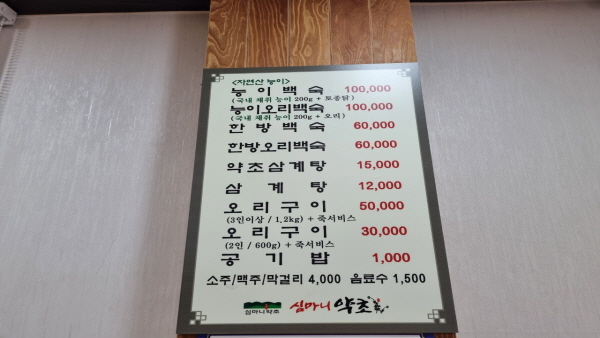 <자연산 능이>
능이백숙 100,000
(국내 채취 능이 200g + 토종닭)
능이오리백숙 100,000
(국내 채취 능이 200g + 오리)
한방백숙 60,000
한방오리백숙 60,000
약초삼계탕 15,000
삼계탕 12,000
오리구이 50,000
(3인이상 / 1.2kg) + 죽서비스
오리구이 30,000
(2인 / 600g) + 죽서비스
공기밥 1,000
소주/맥주/막걸리 4,000 음료수 1,500
심마니약초 심마니 약초